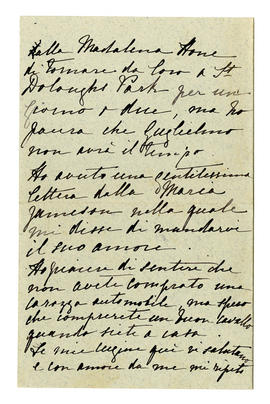 dalla Maddalena Hone
di tornare da loro a St
Doloughs Park per un
giorno o due, ma ho
paura che Guglielmo
non avrà il tempo.
Ho avuto una gentilissima
lettera dalla Maria
Jameson nella quale
mi disse di mandarvi
il suo amore.
di sentire che
non avete comprato una
carozza automobile ma spero
che comprerete un buon cavallo
quando siete a casa.
Le mie cugine qui vi salutano
e con amore da me mi ripeto